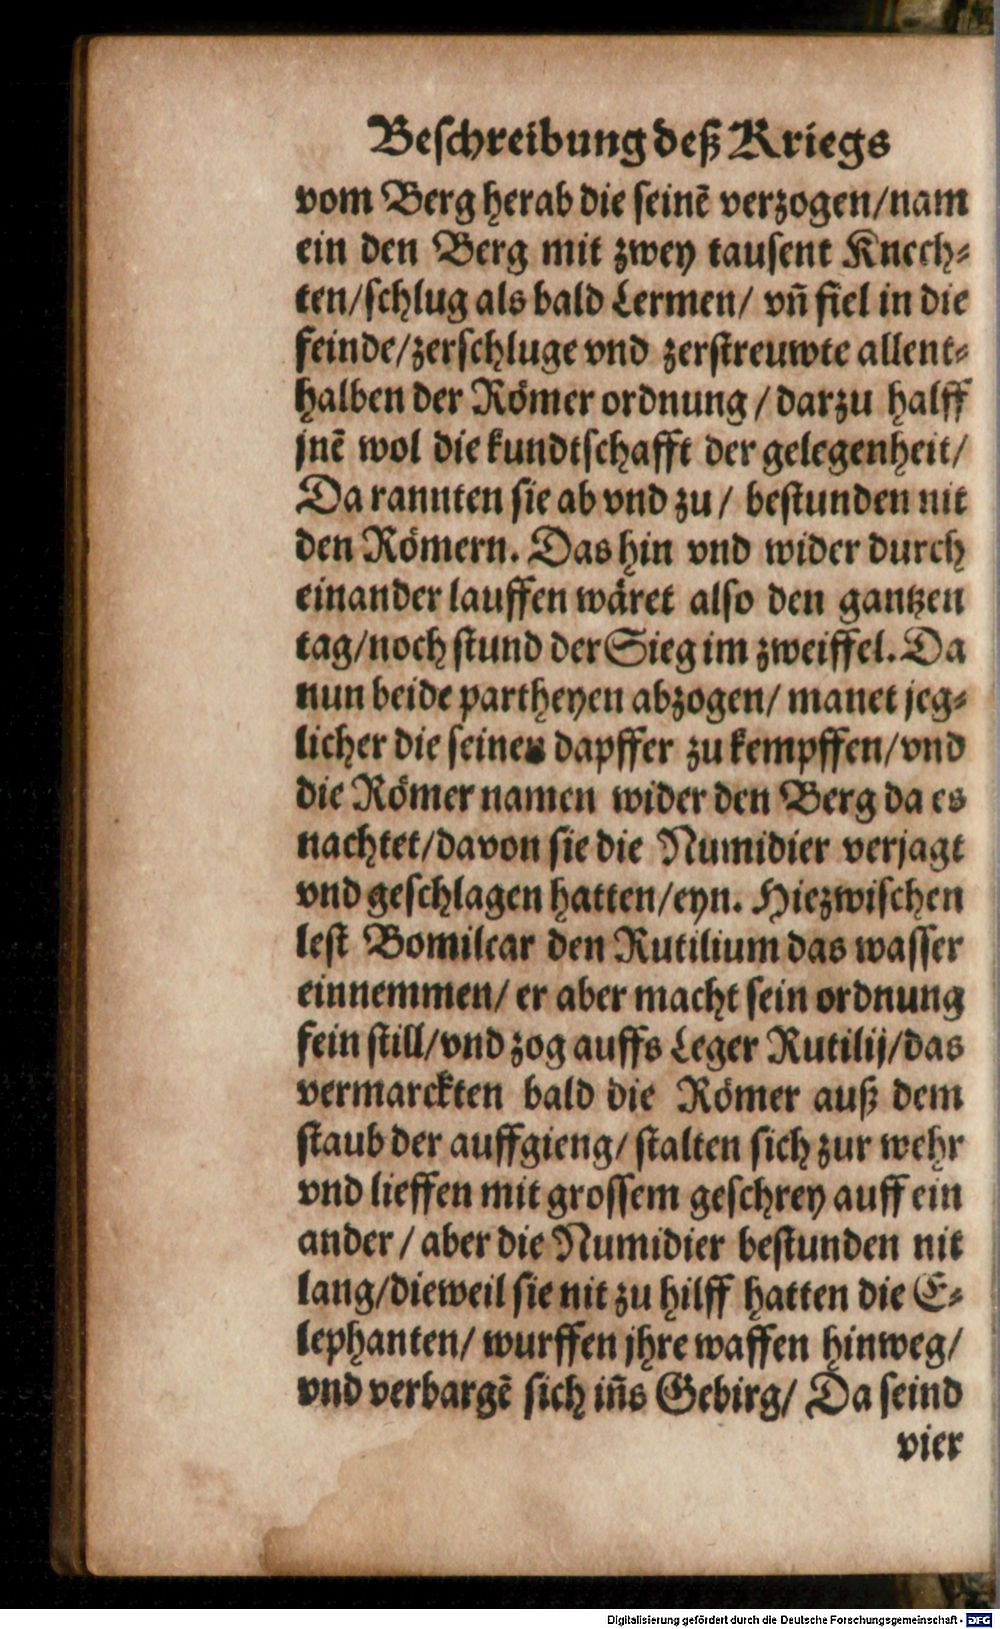 Beſchreibung deß Kriegs
vom Berg herab die ſeinē verzogen/nam
ein den Berg mit zwey tauſent Knech⸗
ten/ſchlug als bald Lermen/ vñ fiel in die
feinde/zerſchluge vnd zerſtreuwte allent⸗
halben der Roͤmer ordnung / darzu halff
jnē wol die kundtſchafft der gelegenheit/
Da rannten ſie ab vnd zu / beſtunden nit
den Roͤmern. Das hin vnd wider durch
einander lauffen waͤret alſo den gantzen
tag/noch ſtund der Sieg im zweiffel. Da
nun beide partheyen abzogen/ manet jeg⸗
licher die ſeinen dapffer zu kempffen/vnd
die Roͤmer namen wider den Berg da es
nachtet/davon ſie die Numidier verjagt
vnd geſchlagen hatten/eyn. Hiezwiſchen
leſt Bomilcar den Rutilium das waſſer
einnemmen/ er aber macht ſein ordnung
fein ſtill/vnd zog auffs Leger Rutilij/das
vermarckten bald die Roͤmer auß dem
ſtaub der auffgieng/ ſtalten ſich zur wehr
vnd lieffen mit groſſem geſchrey auff ein
ander / aber die Numidier beſtunden nit
lang/dieweil ſie nit zu hilff hatten die E⸗
lephanten/ wurffen jhre waffen hinweg/
vnd verbargē ſich iñs Gebirg/ Da ſeind
vier
Digitalisierung gefördert durch die Deutsche Forschungsgemeinschaft - DFG